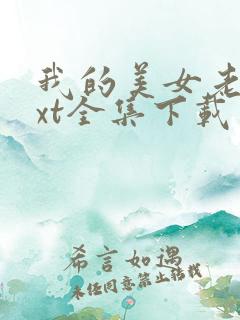 我的美女老
xt全集下载
希言如遇
未经同意禁止转载